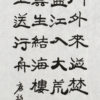 外來從楚
盡江入大荒
雲生結海樓
送行舟